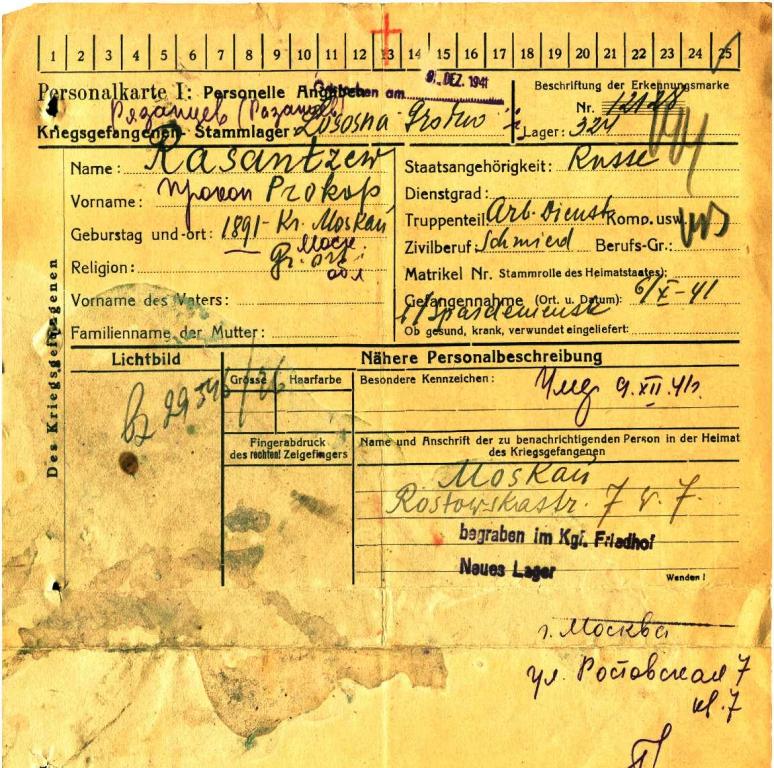 1 2 3 4 5 6 7 8 9 10 11 12 13 14 15 16 17 18 19 20 21 22 23 24 25
Personalkarte I: Personelle Angaben
am 9. DEZ. 1941
Beschriftung der Erkennungsmarke
Рязанцев (Разанцев)
Nr. 12128
Kriegsgefangenen-Stammlager: Lososna
Lager: 324
Des Kriegsgefangenen
Name: Rasantzew
Vorname: Прокоп Prokop
Geburtstag und -ort: 1891 - Kr. Moskau
Моск. обл
Religion: gr. ort
Vorname des Vaters:
Familienname der Mutter:
Staatsangehörigkeit: Russe
Dienstgrad:
Truppenteil: Arb. Dienst Komp. usw.:
Zivilberuf: Schmied Berufs-Gr.:
Matrikel Nr. (Stammrolle des Heimatstaates):
Gefangennahme (Ort u. Datum): 6/X-41
Ob gesund, krank, verwundet eingeliefert:
Lichtbild
Nähere Personalbeschreibung
Grösse Haarfarbe Besondere Kennzeichen:
9.XII.41
Fingerabdruck
des rechten! Zeigefingers
Name und Anschrift der zu benachrichtigenden Person in der Heimat
des Kriegsgefangenen
Moskau
Rostowskastr. 7 w. 7.
begraben im Kgf. Friedhof
Neues Lager
Wenden!
г. Москва
ул. Ростовская 7
кв. 7